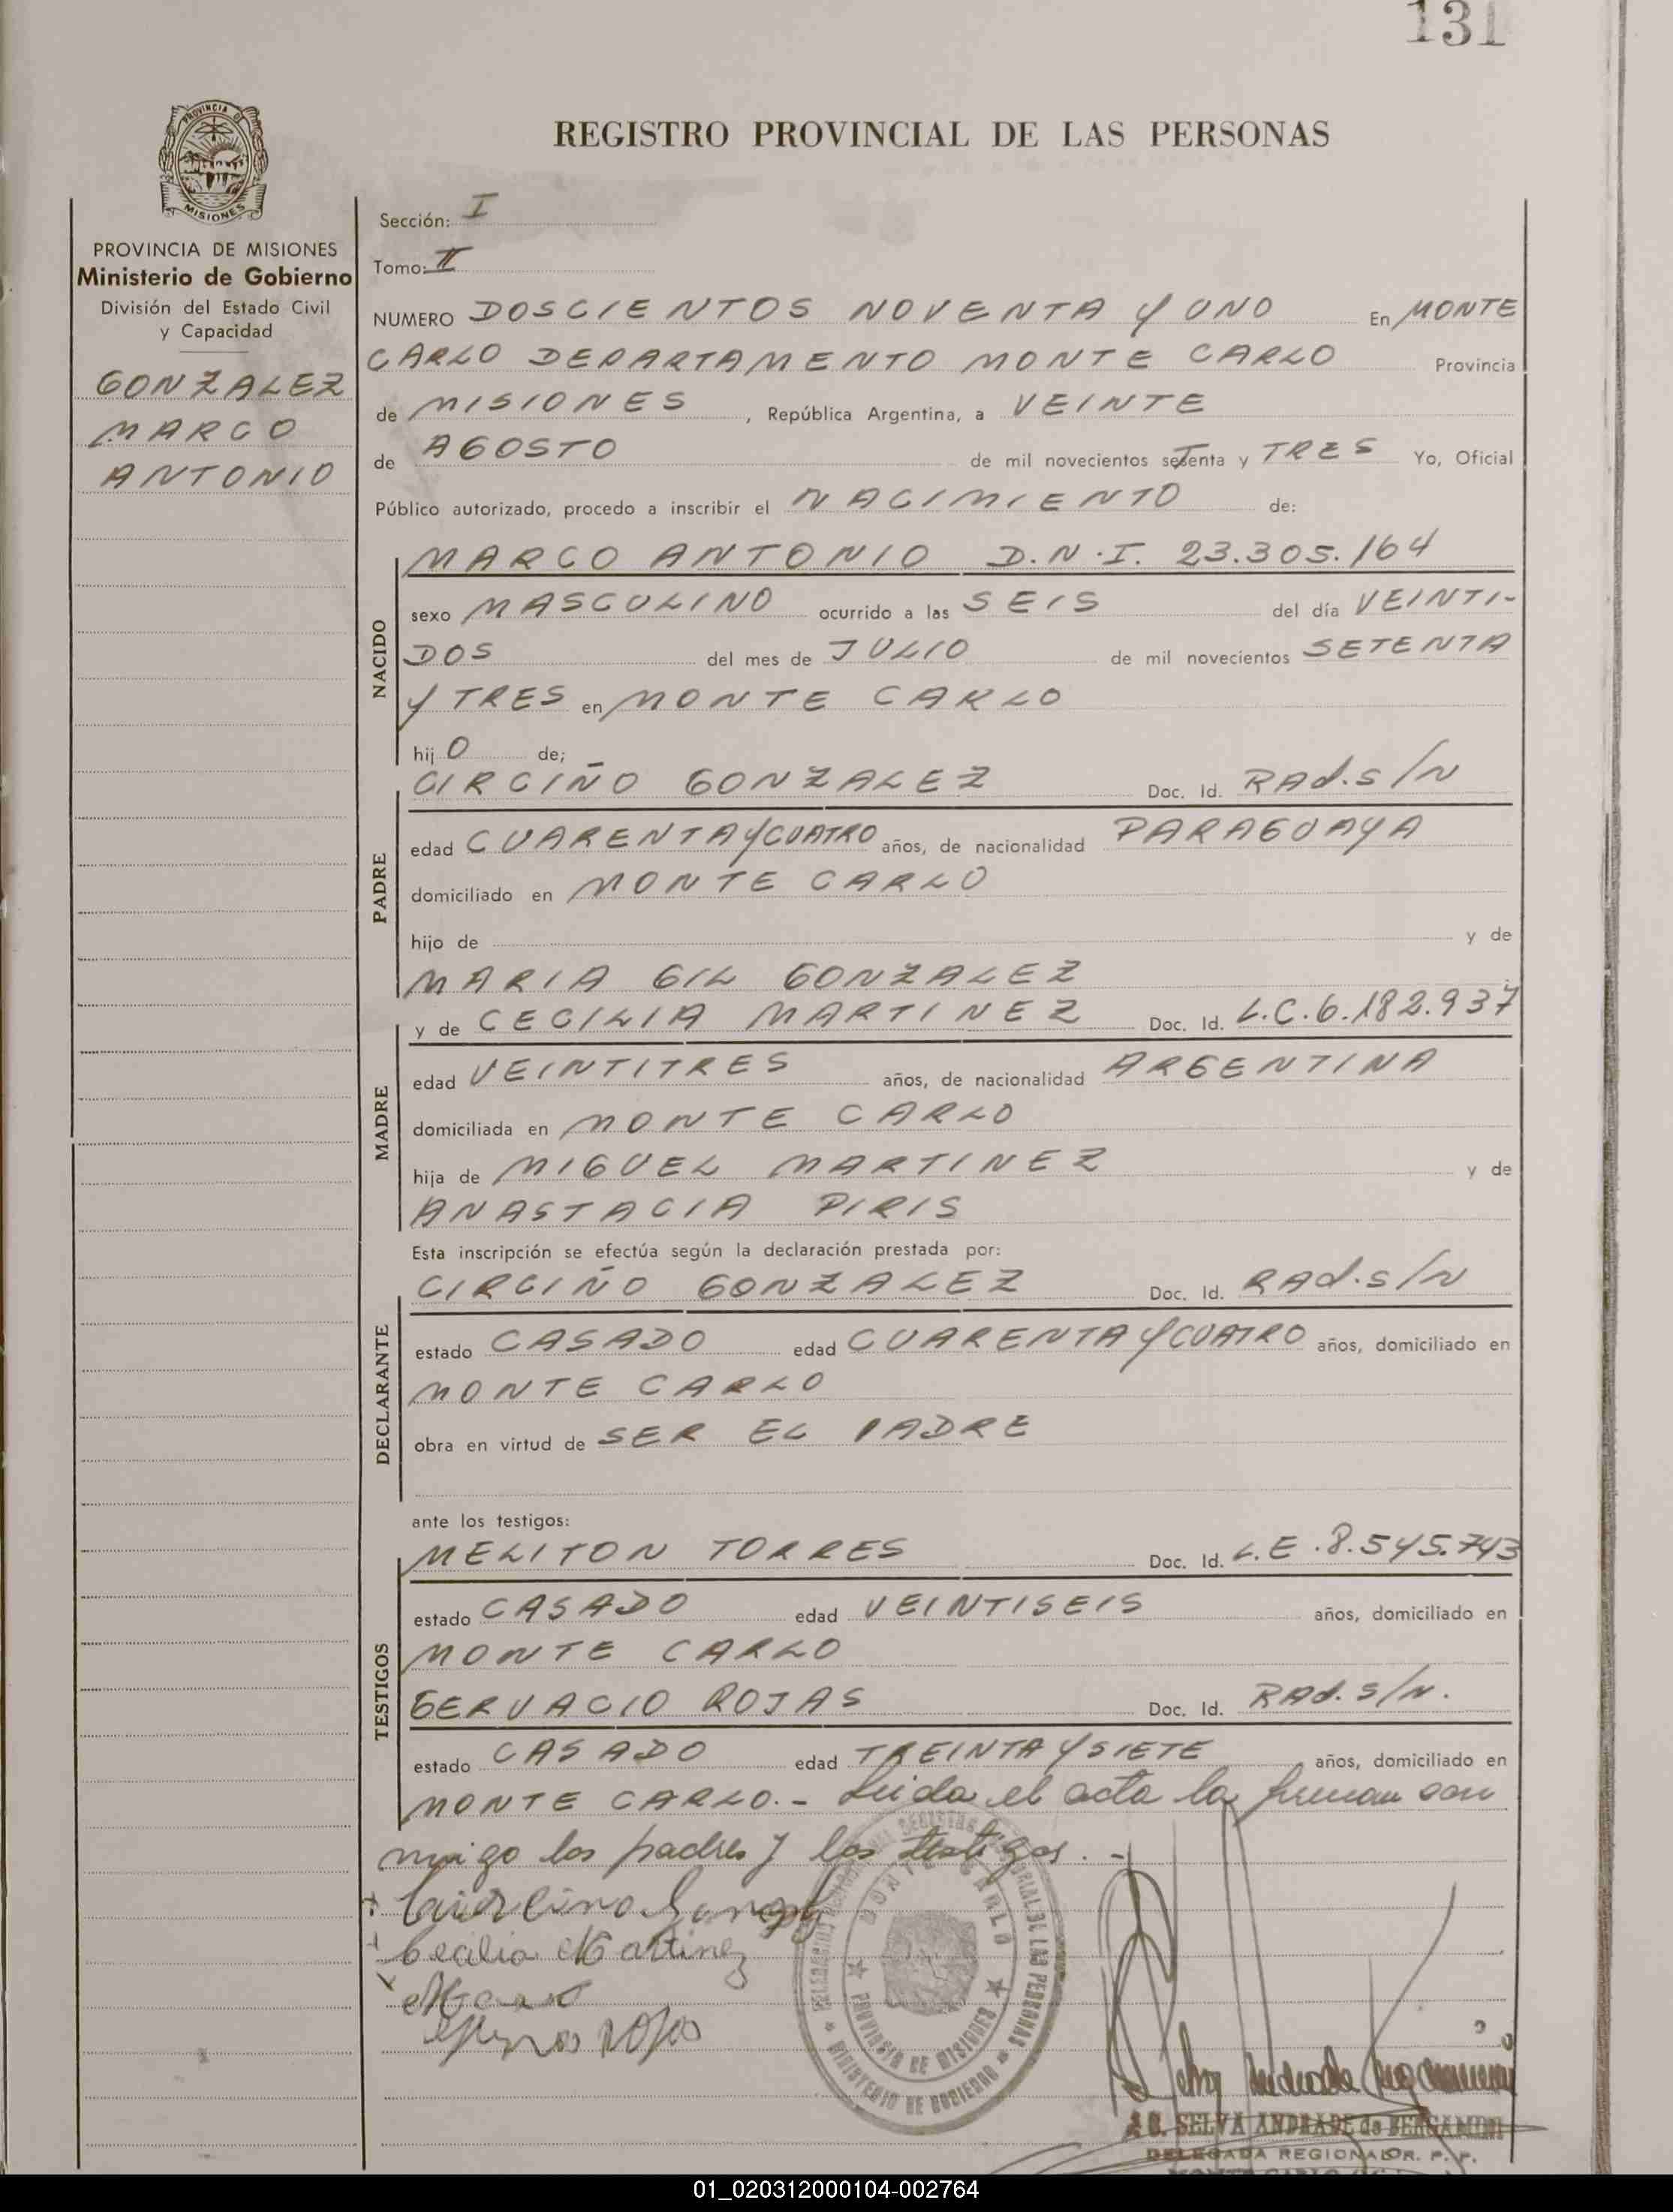 131
REGISTRO PROVINCIAL DE LAS PERSONAS
PROVINCIA DE
MISIONES
PROVINCIA DE MISIONES
Ministerio de Gobierno
División del Estado Civil
y Capacidad
GONZALEZ
MARCO
ANTONIO
Sección: I
Tomo: II
NUMERO DOSCIENTOS NOVENTA Y UNO En MONTE
CARLO DEPARTAMENTO MONTE CARLO Provincia
de MISIONES, República Argentina, a VEINTE
de AGOSTO de mil novecientos setenta y TRES Yo, Oficial
Público autorizado, procedo a inscribir el NACIMIENTO de:
NACIDO
MARCO ANTONIO D.N.I. 23.305.164
sexo MASCULINO ocurrido a las SEIS del día VEINTI-
DOS del mes de JULIO de mil novecientos SETENTA
Y TRES en MONTE CARLO
hij O de;
PADRE
CIRCIÑO GONZALEZ Doc. Id. RAd. S/N
edad CUARENTA Y CUATRO años, de nacionalidad PARAGUAYA
domiciliado en MONTE CARLO
hijo de y de
MARIA GIL GONZALEZ
MADRE
y de CECILIA MARTINEZ Doc. Id. L.C. 6.182.937
edad VEINTITRES años, de nacionalidad ARGENTINA
domiciliada en MONTE CARLO
hija de MIGUEL MARTINEZ y de
ANASTACIA PIRIS
Esta inscripción se efectúa según la declaración prestada por:
DECLARANTE
CIRCIÑO GONZALEZ Doc. Id. RAd. S/N
estado CASADO edad CUARENTA Y CUATRO años, domiciliado en
MONTE CARLO
obra en virtud de SER EL PADRE
ante los testigos:
TESTIGOS
MELITON TORRES Doc. Id. L.E. 8.545.743
estado CASADO edad VEINTISEIS años, domiciliado en
MONTE CARLO
GERVACIO ROJAS Doc. Id. RAd. S/N.
estado CASADO edad TREINTA Y SIETE años, domiciliado en
MONTE CARLO.- Leida el acta la firman con
migo los padres y los testigos.-
Cecilia Martinez
Rojas
MONTE CARLO
PROVINCIA DE MISIONES
MINISTERIO DE GOBIERNO
SELVA ANDRADE de BERGAMINI
DELEGADA REGIONAL R. P. P.
01_020312000104-002764